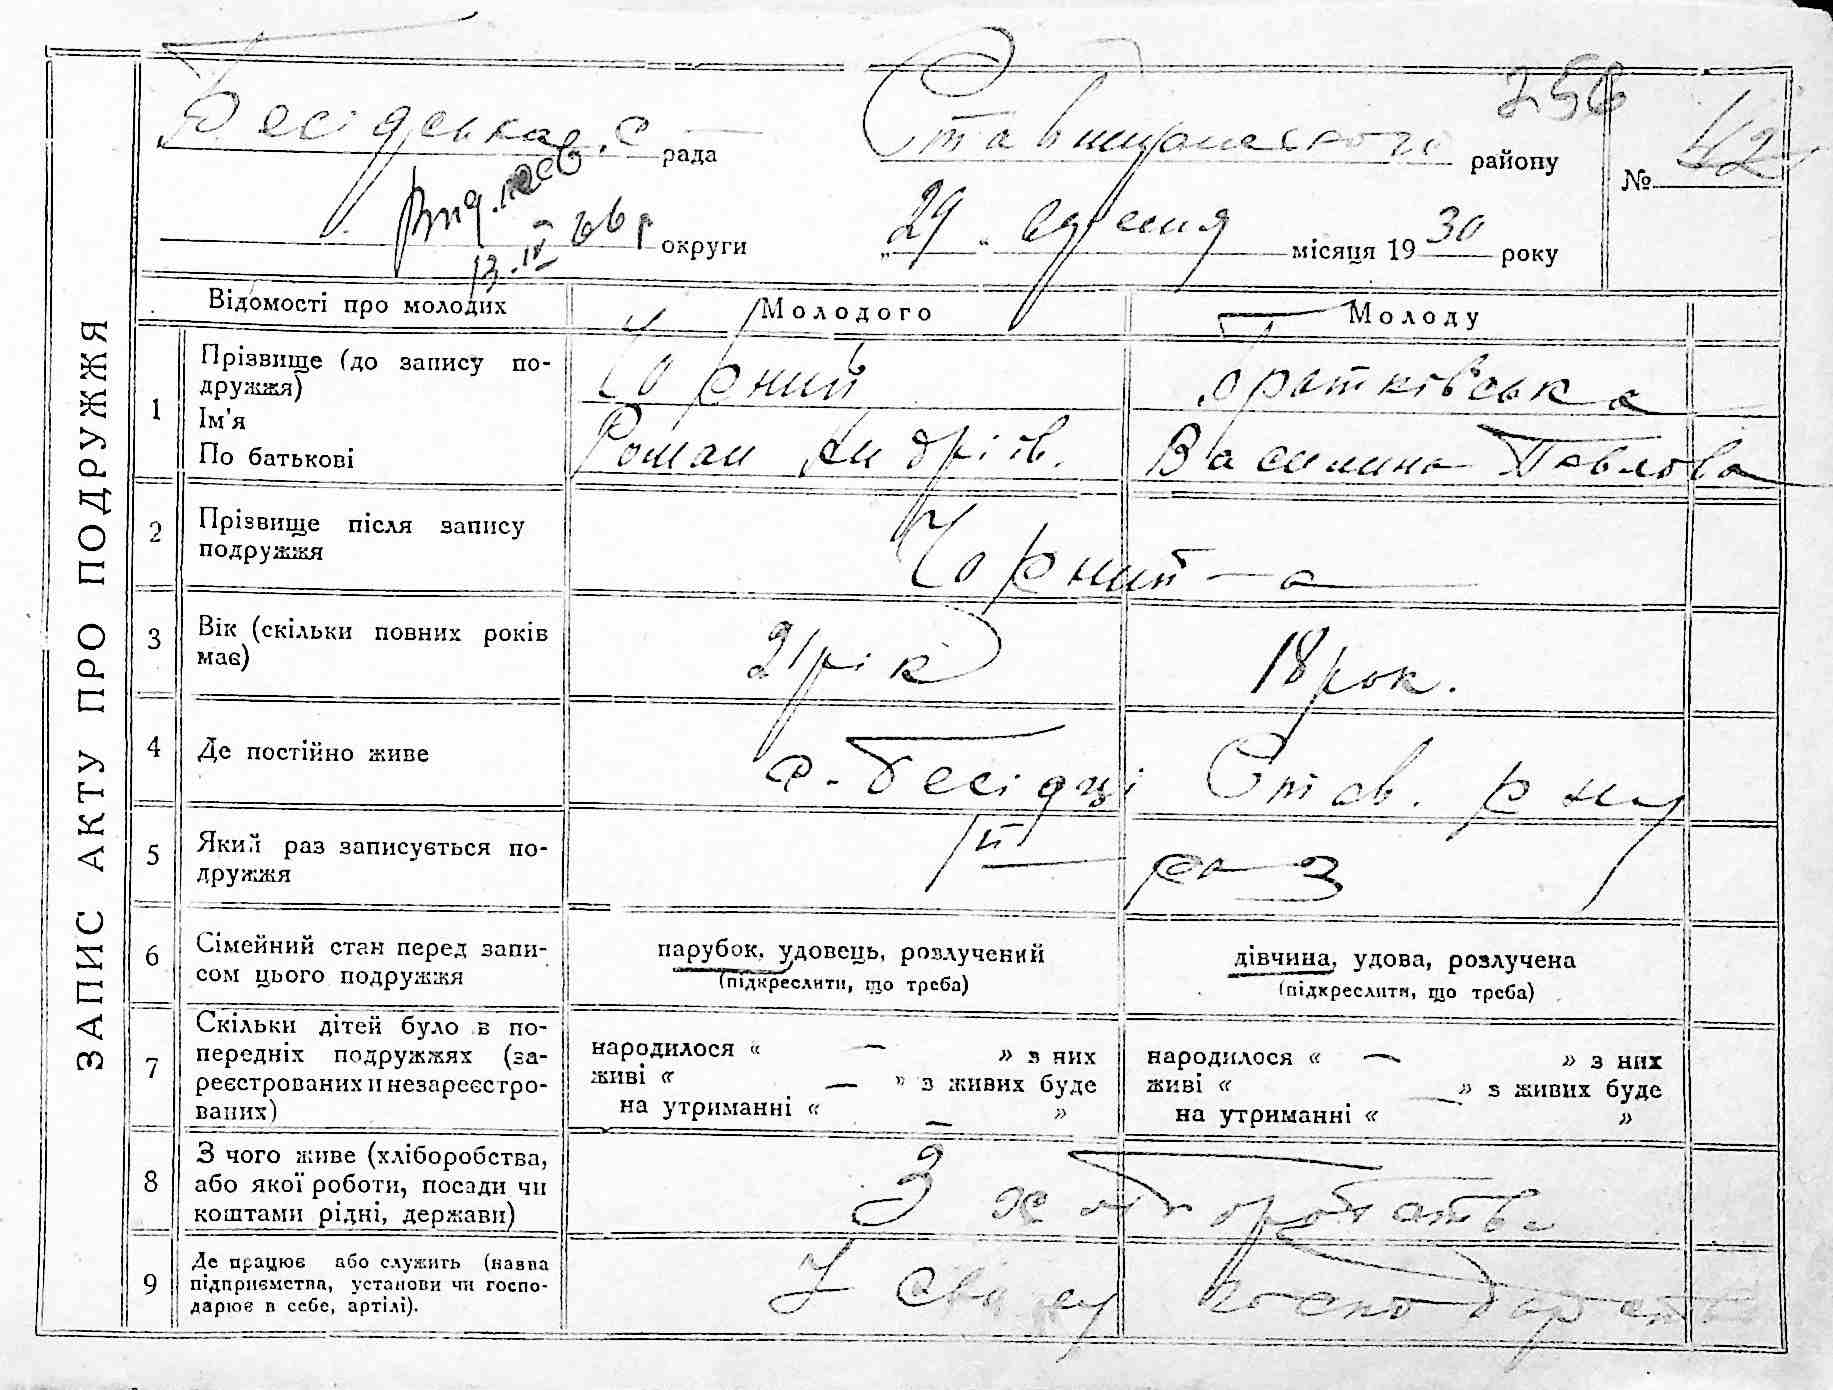 256
Бесідська с. рада Ставищанського району № 42
округи „29" серпня місяця 1930 року
13.IV 66 р
ЗАПИС АКТУ ПРО ПОДРУЖЖЯ
Відомості про молодих Молодого Молоду
1 Прізвище (до запису по-
дружжя) Чорний Братковська
Ім'я
По батькові Роман Андріїв. Василина Павлова
2 Прізвище після запису
подружжя Чорний — а
3 Вік (скільки повних років
має) 21 рік 18 рок.
4 Де постійно живе с. Бесідці Став. р ну
5 Який раз записується по-
дружжя раз
6 Сімейний стан перед запи-
сом цього подружжя
парубок, удовець, розлучений
(підкреслити, що треба)
дівчина, удова, розлучена
(підкреслити, що треба)
7 Скільки дітей було в по-
передніх подружжях (за-
реєстрованих и незареєстро-
ваних)
народилося « — » з них
живі « — » з живих буде
на утриманні « — »
народилося « — » з них
живі « — » з живих буде
на утриманні « »
8 З чого живе (хліборобства,
або якої роботи, посади чи
коштами рідні, держави) З хліборобства
9 Де працює або служить (назва
підприємства, установи чи госпо-
дарює в себе, артілі). У свому господарстві